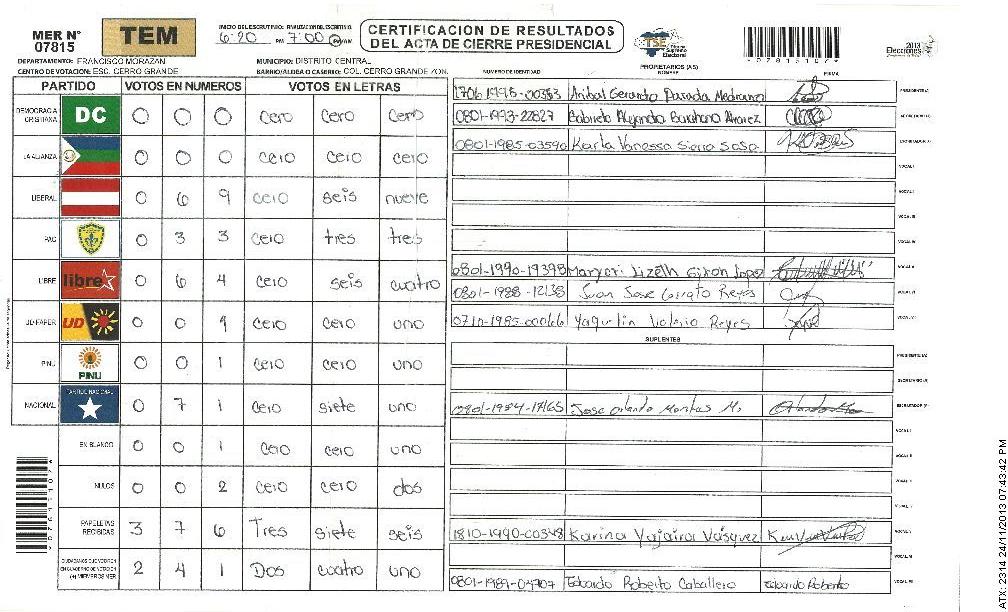 MER N° 07815
TEM
INICIO DEL ESCRUTINIO: FINALIZACION DEL ESCRUTINIO
6:20 PM 7:00 PM
CERTIFICACION DE RESULTADOS DEL ACTA DE CIERRE PRESIDENCIAL
TSE Tribunal Supremo Electoral
*07815107*
2013 Elecciones
DEPARTAMENTO: FRANCISCO MORAZAN
MUNICIPIO: DISTRITO CENTRAL
CENTRO DE VOTACION: ESC. CERRO GRANDE
BARRIO/ALDEA O CASERIO: COL. CERRO GRANDE ZON.
NUMERO DE IDENTIDAD PROPIETARIOS (AS) NOMBRE FIRMA
PARTIDO VOTOS EN NUMEROS VOTOS EN LETRAS
DEMOCRACIA CRISTIANA DC 0 0 0 cero cero cero
LA ALIANZA 0 0 0 cero cero cero
LIBERAL 0 6 9 cero seis nueve
PAC 0 3 3 cero tres tres
LIBRE libre 0 6 4 cero seis cuatro
UD-FAPER UD 0 0 1 cero cero uno
PINU PINU 0 0 1 cero cero uno
NACIONAL PARTIDO NACIONAL 0 7 1 cero siete uno
EN BLANCO 0 0 1 cero cero uno
NULOS 0 0 2 cero cero dos
PAPELETAS RECIBIDAS 3 7 6 Tres siete seis
CIUDADANOS QUE VOTARON EN CUADERNO DE VOTACION (+) MIEMBROS MER 2 4 1 Dos cuatro uno
Anibal Gerardo Parada Medrano PRESIDENTE (A)
0801-1993-22827 Gabriela Alejandra Barahona Alvarez SECRETARIO (A)
0801-1985-03590 Karla Vanessa Sierra Sosa ESCRUTADOR (A)
VOCAL I
VOCAL II
VOCAL III
VOCAL IV
0801-1990-19398 Maryori Lizeth Giron Lopez VOCAL V
0801-1988-12138 Juan Jose Reyes VOCAL VI
0710-1985-00066 Yaquelin Valerio Reyes VOCAL VII
SUPLENTES
PRESIDENTE (A)
SECRETARIO (A)
0801-1984-17165 Jose Orlando Montes M. ESCRUTADOR (A)
VOCAL I
VOCAL II
VOCAL III
VOCAL IV
1810-1990-00348 Karina Yajaira Vásquez VOCAL V
VOCAL VI
Edoardo Roberto Caballero Edoardo Roberto VOCAL VII
*07815107*
ATX: 2314 24/11/2013 07:43:42 PM